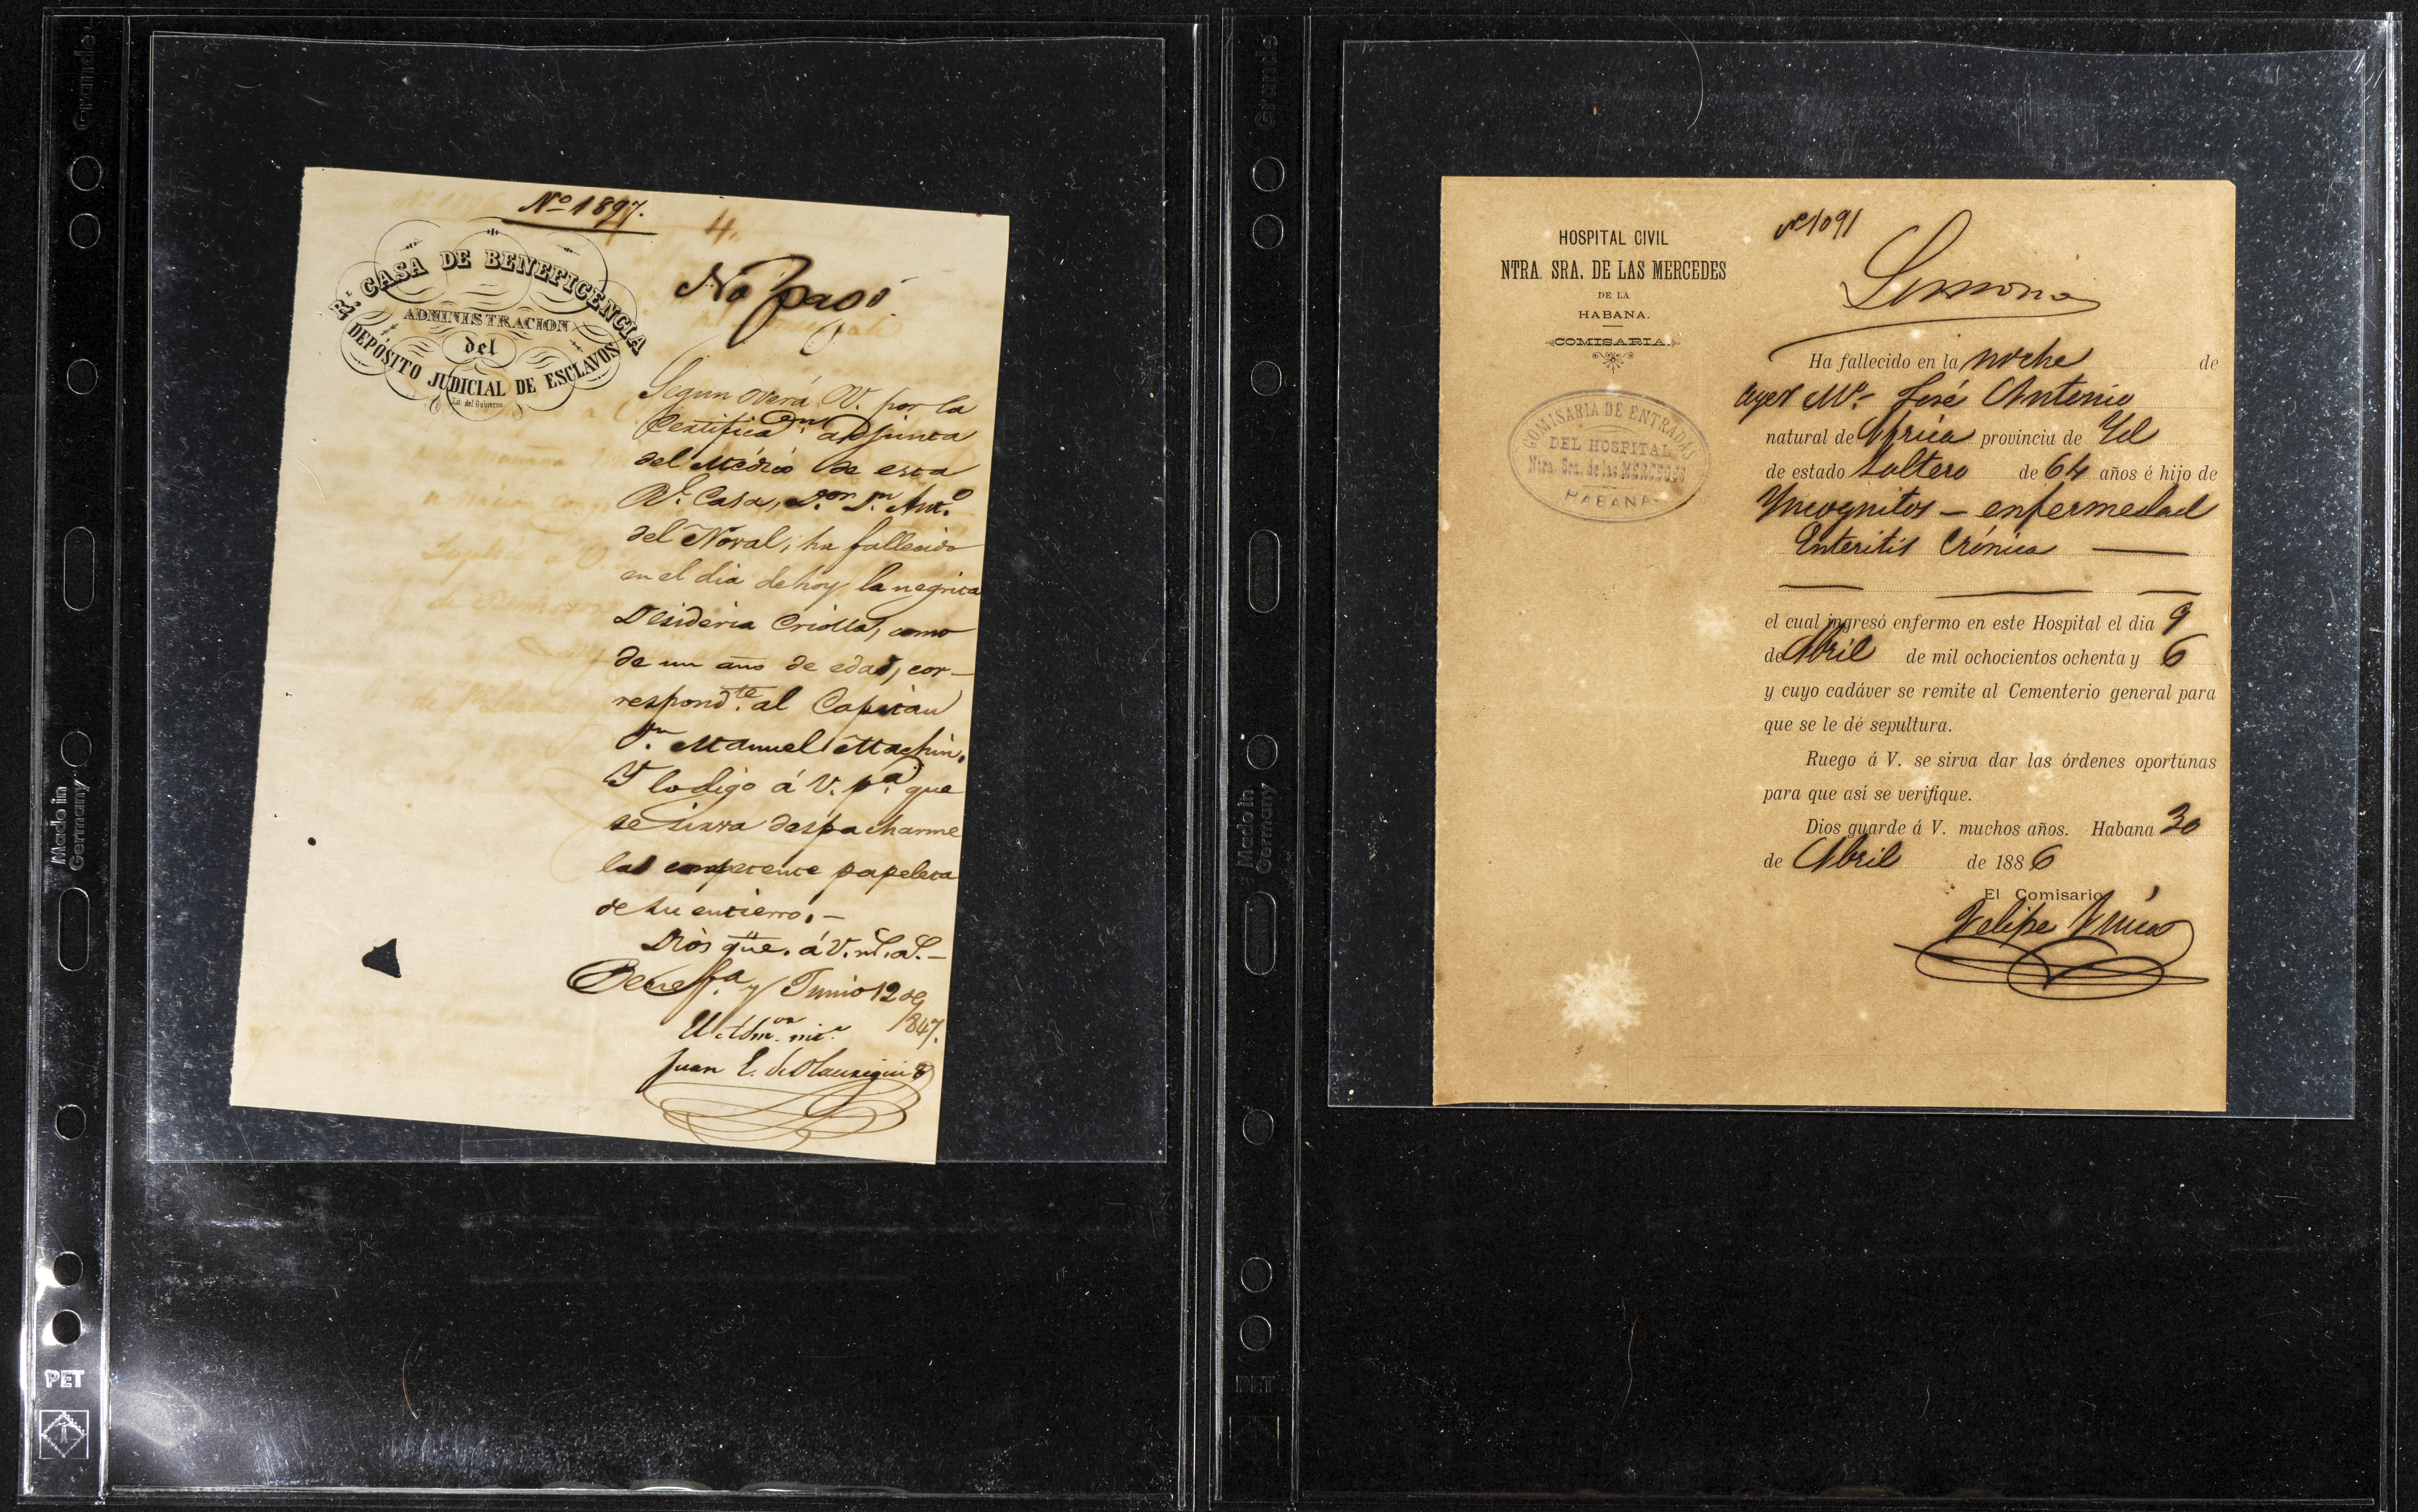 Grande
Nº 1897.
4.
No pagó
Rˡ. CASA DE BENEFICENCIA
ADMINISTRACION
del
DEPÓSITO JUDICIAL DE ESCLAVOS
Lit. del Gobierno
Segun verá V. por la
Certificaᵒⁿ. adjunta
del Médico de esta
Rˡ. Casa, Dᵒʳ. Dⁿ. Antº.
del Noval, ha fallecido
en el dia de hoy, la negrita
Desideria Criolla, como
de un año de edad, cor-
respondᵗᵉ. al Capitan
Dⁿ. Manuel Machin.
Y lo digo á V. pᵃ. que
se sirva despacharme
la competente papeleta
de su entierro.-
Dios güe. á V. mˢ. aˢ.-
Beneffᵃ. y Junio 12 de
1847.
Juan E. de
Made in
Germany
PET
Grande
HOSPITAL CIVIL
NTRA. SRA. DE LAS MERCEDES
DE LA
HABANA.
COMISARIA.
COMISARIA DE ENTRADAS
DEL HOSPITAL
Ntra. Sra. de las MERCEDES
HABANA
Nº 1091
Limosna
Ha fallecido en la noche de
ayer Mº. José Antonio
natural de Africa provincia de Yd
de estado soltero de 64 años é hijo de
Yncognitos - enfermedad
Enteritis Crónica
el cual ingresó enfermo en este Hospital el dia 9
de Abril de mil ochocientos ochenta y 6
y cuyo cadáver se remite al Cementerio general para
que se le dé sepultura.
Ruego á V. se sirva dar las órdenes oportunas
para que así se verifique.
Dios guarde á V. muchos años. Habana 30
de Abril de 1886
El Comisario,
Felipe
Made in
Germany
PET